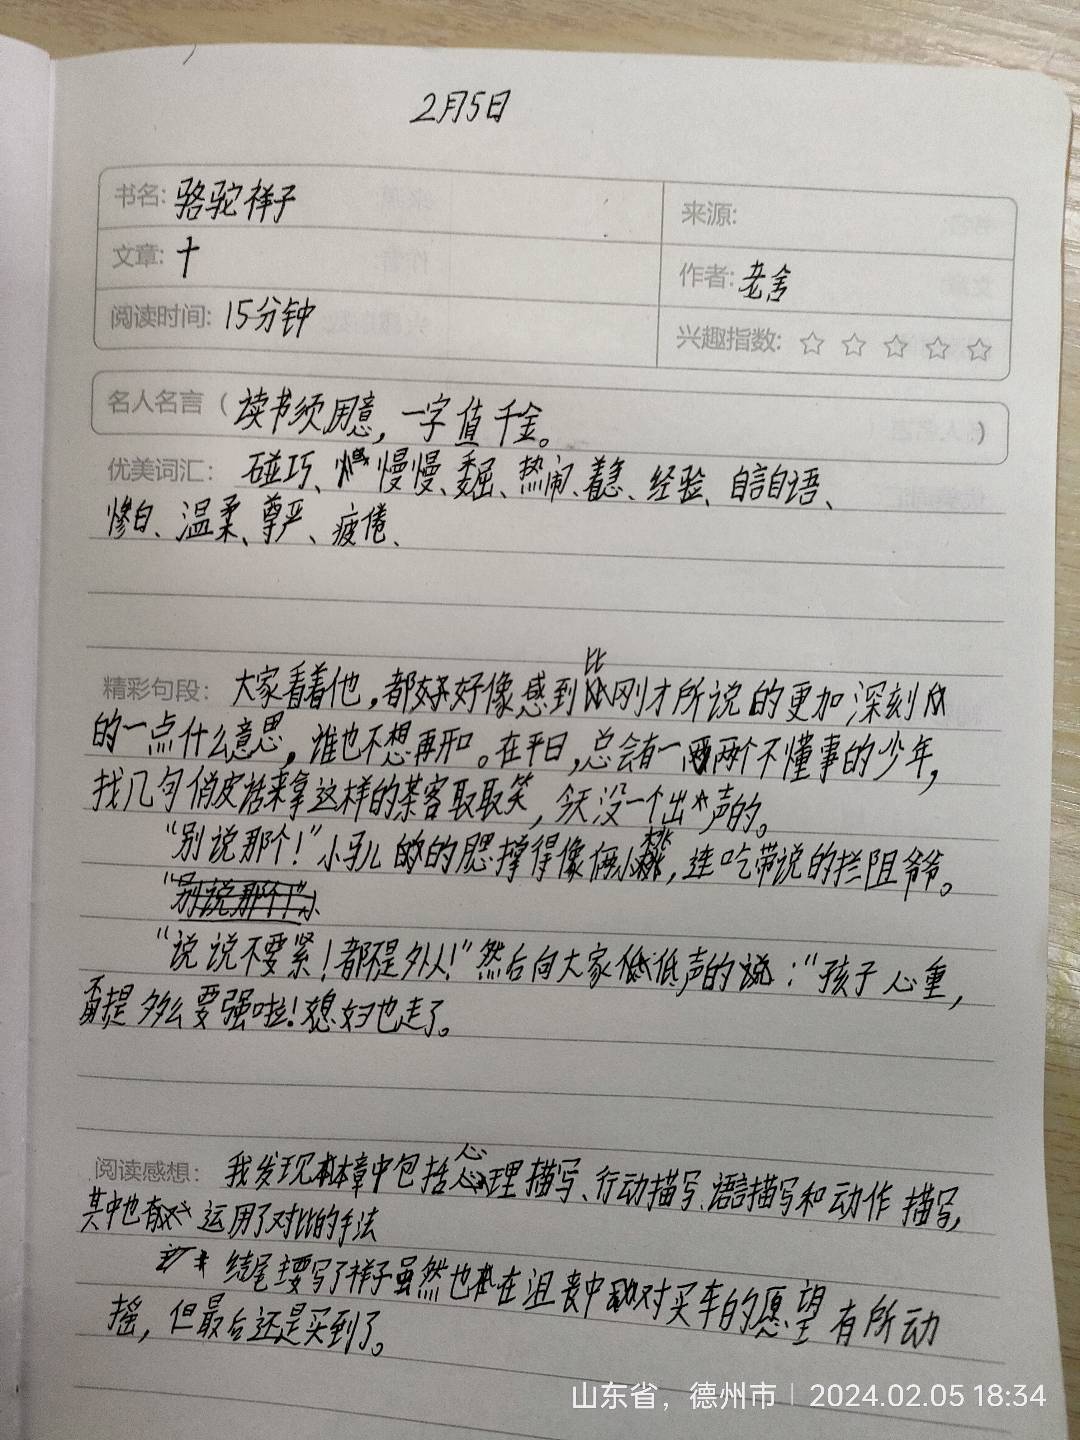 2月5日
书名: 骆驼祥子
来源:
文章: 十
作者: 老舍
阅读时间: 15分钟
兴趣指数: ☆ ☆ ☆ ☆ ☆
名人名言（读书须用意，一字值千金。）
优美词汇: 碰巧、慢慢、委屈、热闹、着急、经验、自言自语、
惨白、温柔、尊严、疲倦、
精彩句段: 大家看着他，都好好像感到比刚才所说的更加深刻
的一点什么意思，谁也不想再开口。在平日，总会有一两个不懂事的少年，
找几句俏皮话来拿这样的茶客取取笑，今天没一个出声的。
“别说那个！”小马儿的的腮撑得像俩小桃，连吃带说的拦阻爷爷。
“别说那个！”小
“说说不要紧！都不是外人！”然后向大家低低声的说：“孩子心重，
甭提多么要强啦！媳妇也走了。
阅读感想: 我发现本章中包括心理描写、行动描写、语言描写和动作描写，
其中也有运用了对比的手法
结尾主要写了祥子虽然也在沮丧中对买车的愿望有所动
摇，但最后还是买到了。
山东省，德州市 | 2024.02.05 18:34